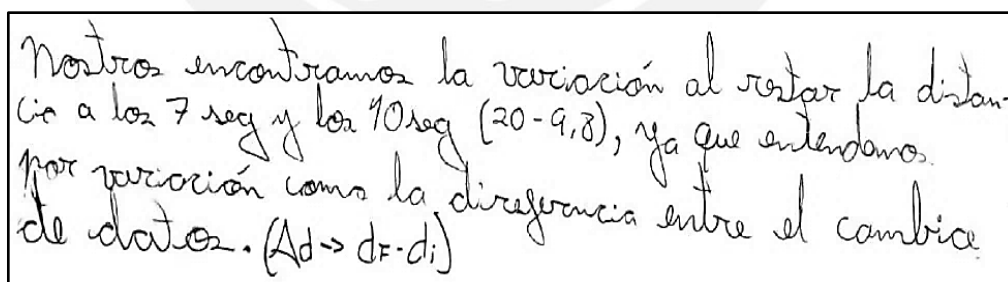 Nostros encontramos la variación al restar la distan-
cia a los 7 seg y los 10 seg (20-9,8), ya que entendamos
por variación como la direferencia entre el cambice
de datos. (Δd → dF-di)